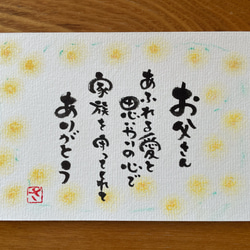 お父さん
あふれる愛と
思いやりの心で
家族を守ってくれて
ありがとう